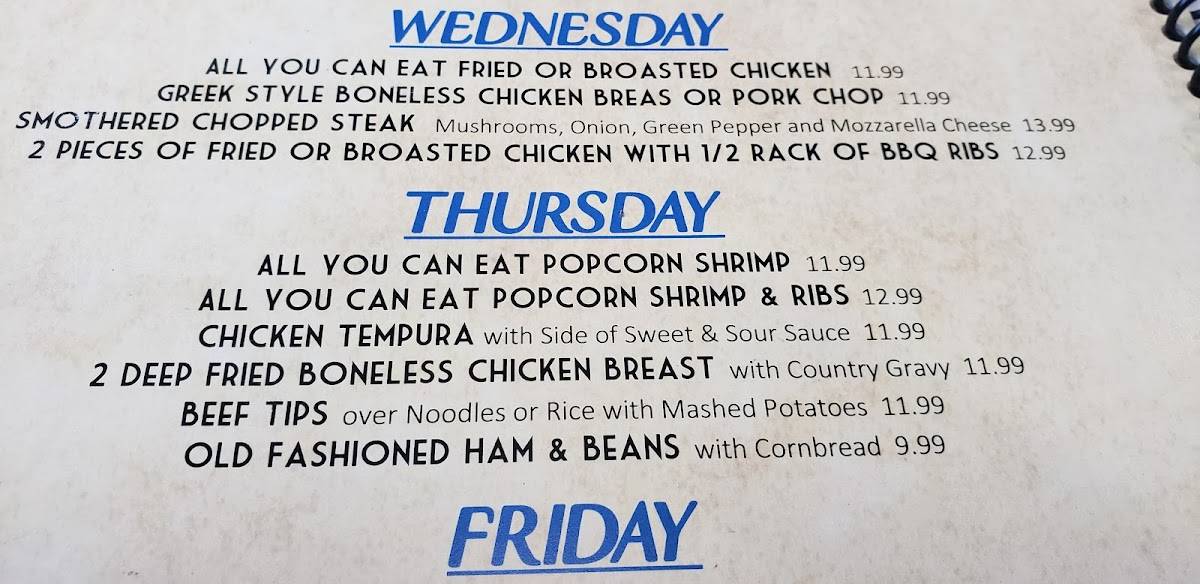 WEDNESDAY
ALL YOU CAN EAT FRIED OR BROASTED CHICKEN 11.99
GREEK STYLE BONELESS CHICKEN BREAS OR PORK CHOP 11.99
SMOTHERED CHOPPED STEAK Mushrooms, Onion, Green Pepper and Mozzarella Cheese 13.99
2 PIECES OF FRIED OR BROASTED CHICKEN WITH 1/2 RACK OF BBQ RIBS 12.99
THURSDAY
ALL YOU CAN EAT POPCORN SHRIMP 11.99
ALL YOU CAN EAT POPCORN SHRIMP & RIBS 12.99
CHICKEN TEMPURA with Side of Sweet & Sour Sauce 11.99
2 DEEP FRIED BONELESS CHICKEN BREAST with Country Gravy 11.99
BEEF TIPS over Noodles or Rice with Mashed Potatoes 11.99
OLD FASHIONED HAM & BEANS with Cornbread 9.99
FRIDAY